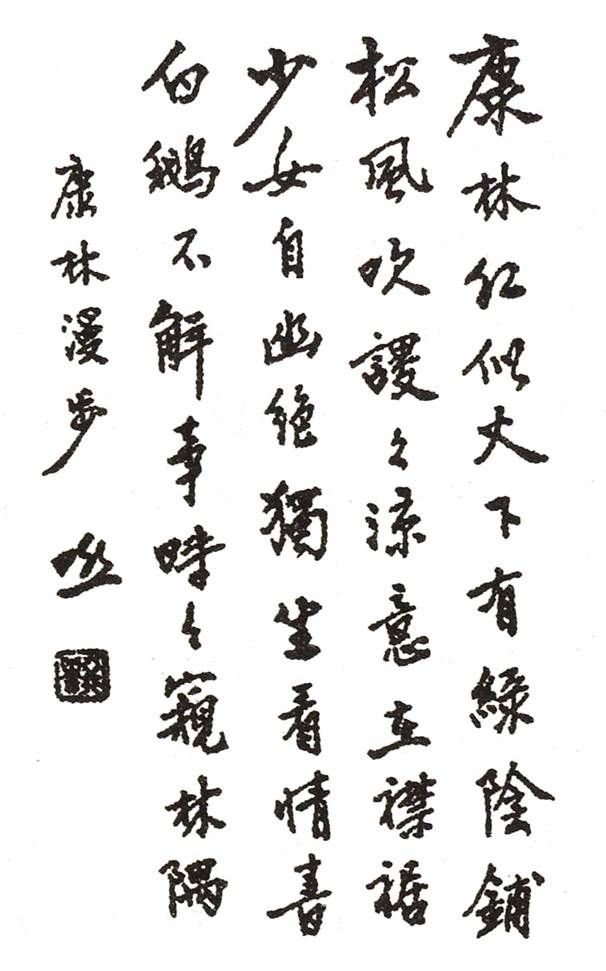 康林紅似火下有綠陰鋪
松風吹謖々涼意在襟裾
少女自幽絕獨坐看情書
白鵝不解事時々窺林隅
康林漫步